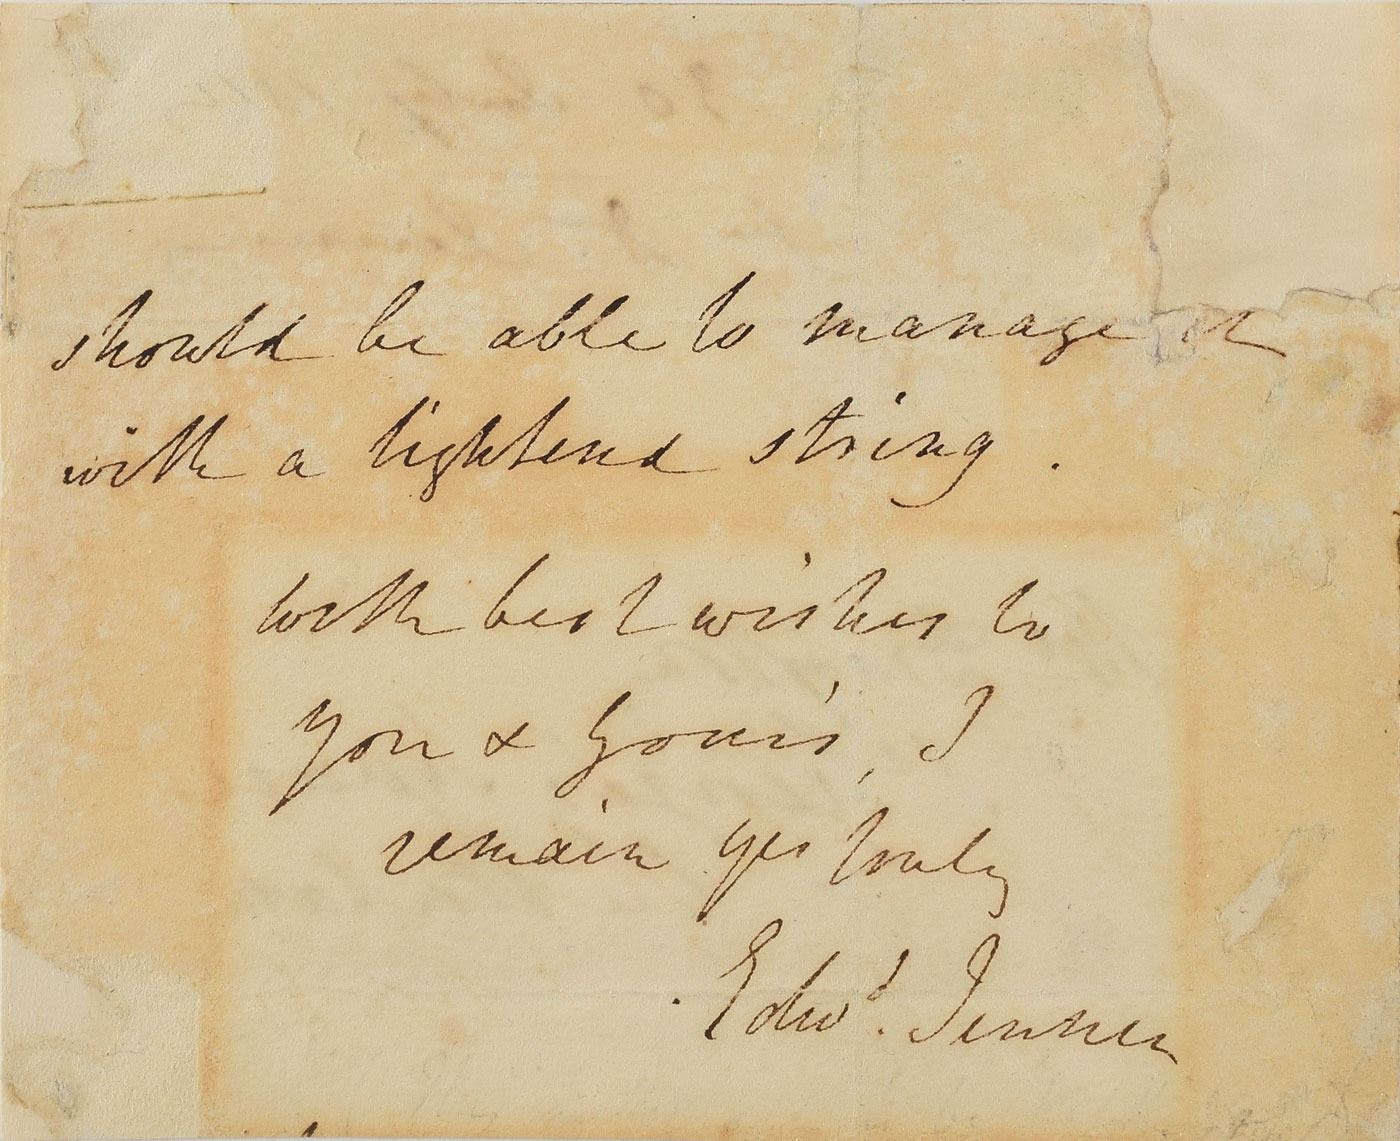 should be able to manage it
with a lightend string.
with best wishes to
you & yours, I
remain yrs truly
Edwd. Jenner